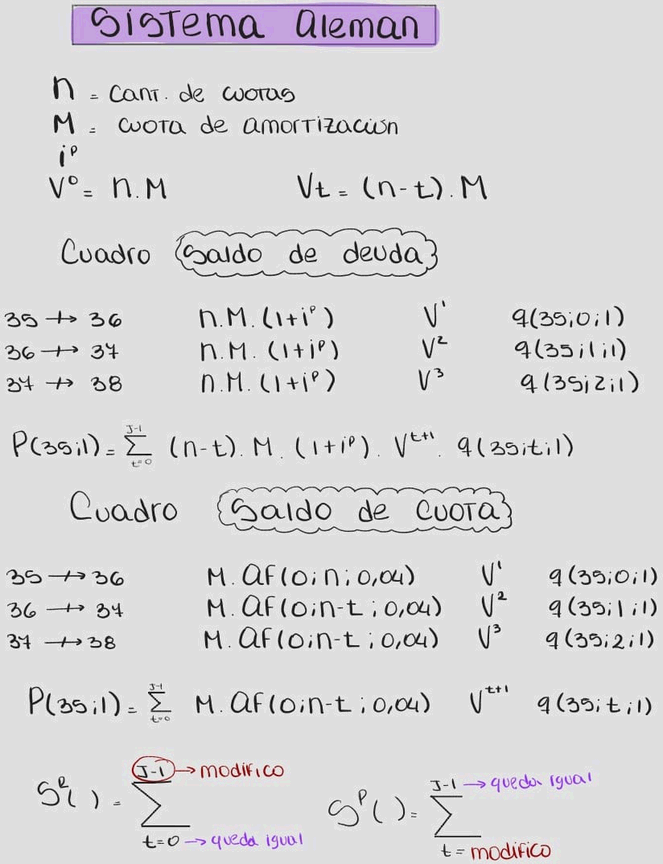 SISTEMA aleman
n = cant. de cuotas
M = cuota de amortización
i^p
V^0 = n.M Vt = (n-t).M
Cuadro Saldo de deuda
35 → 36 n.M.(1+i^p) V^1 q(35;0;1)
36 → 37 n.M.(1+i^p) V^2 q(35;1;1)
37 → 38 n.M.(1+i^p) V^3 q(35;2;1)
P(35;1) = ∑_{t=0}^{J-1} (n-t).M.(1+i^p).V^{t+1}.q(35;t;1)
Cuadro Saldo de cuota
35 → 36 M.aF(0;n;0,04) V^1 q(35;0;1)
36 → 37 M.aF(0;n-t;0,04) V^2 q(35;1;1)
37 → 38 M.aF(0;n-t;0,04) V^3 q(35;2;1)
P(35;1) = ∑_{t=0}^{J-1} M.aF(0;n-t;0,04) V^{t+1} q(35;t;1)
J-1 → modifico J-1 → queda igual
S^R( ) = ∑ S^P( ) = ∑
t=0 → queda igual t = modifico